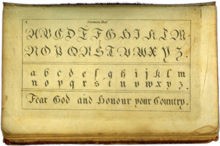 A B C D E F G H I K L M
N O P Q R S T U V W X Y Z.
a b c d e f g h i j k l m
n o p q r s t u v w x y z.
Fear God and Honour your Country.